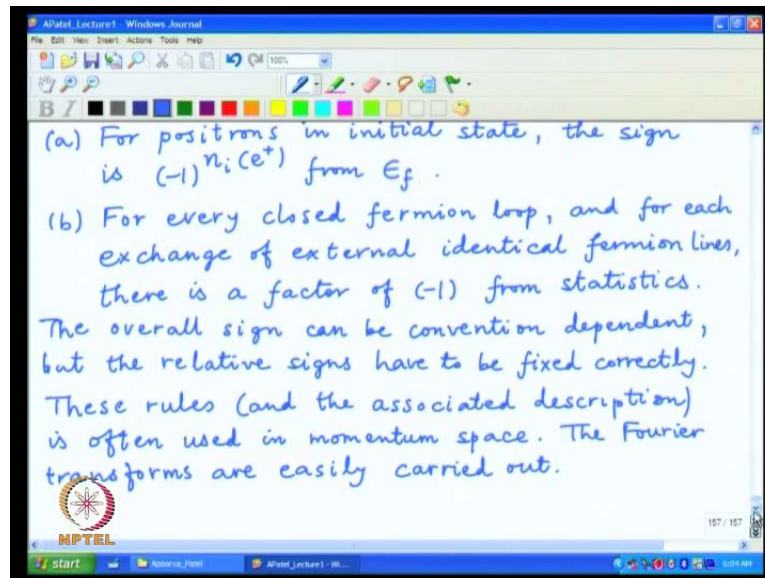 APatel_Lecture1 - Windows Journal
File Edit View Insert Actions Tools Help
100%
B I
(a) For positrons in initial state, the sign
is (-1)^{n_i(e^+)} from ϵ_f.
(b) For every closed fermion loop, and for each
exchange of external identical fermion lines,
there is a factor of (-1) from statistics.
The overall sign can be convention dependent,
but the relative signs have to be fixed correctly.
These rules (and the associated description)
is often used in momentum space. The Fourier
transforms are easily carried out.
157 / 157
NPTEL
start Apoorva_Patel APatel_Lecture1 - Wi... 6:04 AM